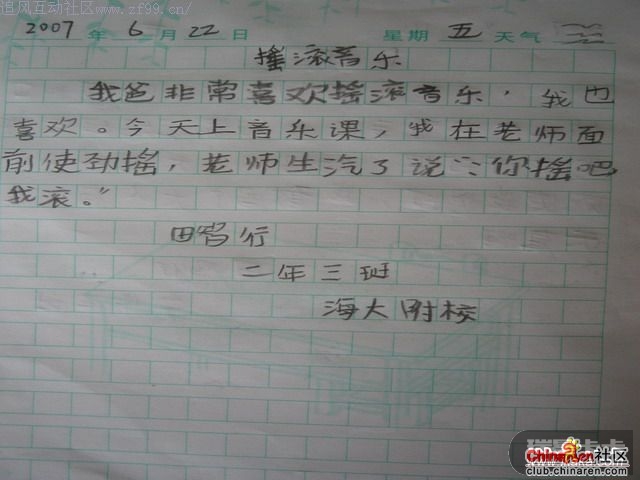 追风互动社区
www.zf99.cn/
2007 年 6 月 22 日 星期 五 天气
摇滚音乐
我爸非常喜欢摇滚音乐，我也
喜欢。今天上音乐课，我在老师面
前使劲摇，老师生汽了说：“你摇吧
我滚。”
田智行
二年三班
海大附校
ChinaRen社区
club.chinaren.com